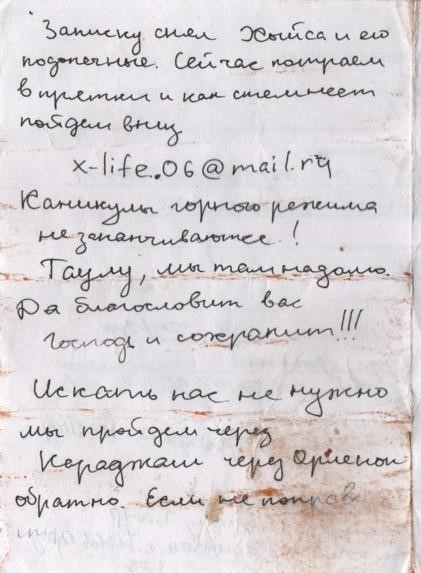 Записку снял Хыйса и его
подопечные. Сейчас поиграем
в прятки и как стемнеет
пойдем вниз
x-life.06@mail.ru
Каникулы горного режима
не заканчиваются!
Таулу, мы там надолго.
Да благословит вас
господь и сохранит!!!
Искать нас не нужно
мы пройдем через
Кераджаш через Орленок
обратно. Если не поправ